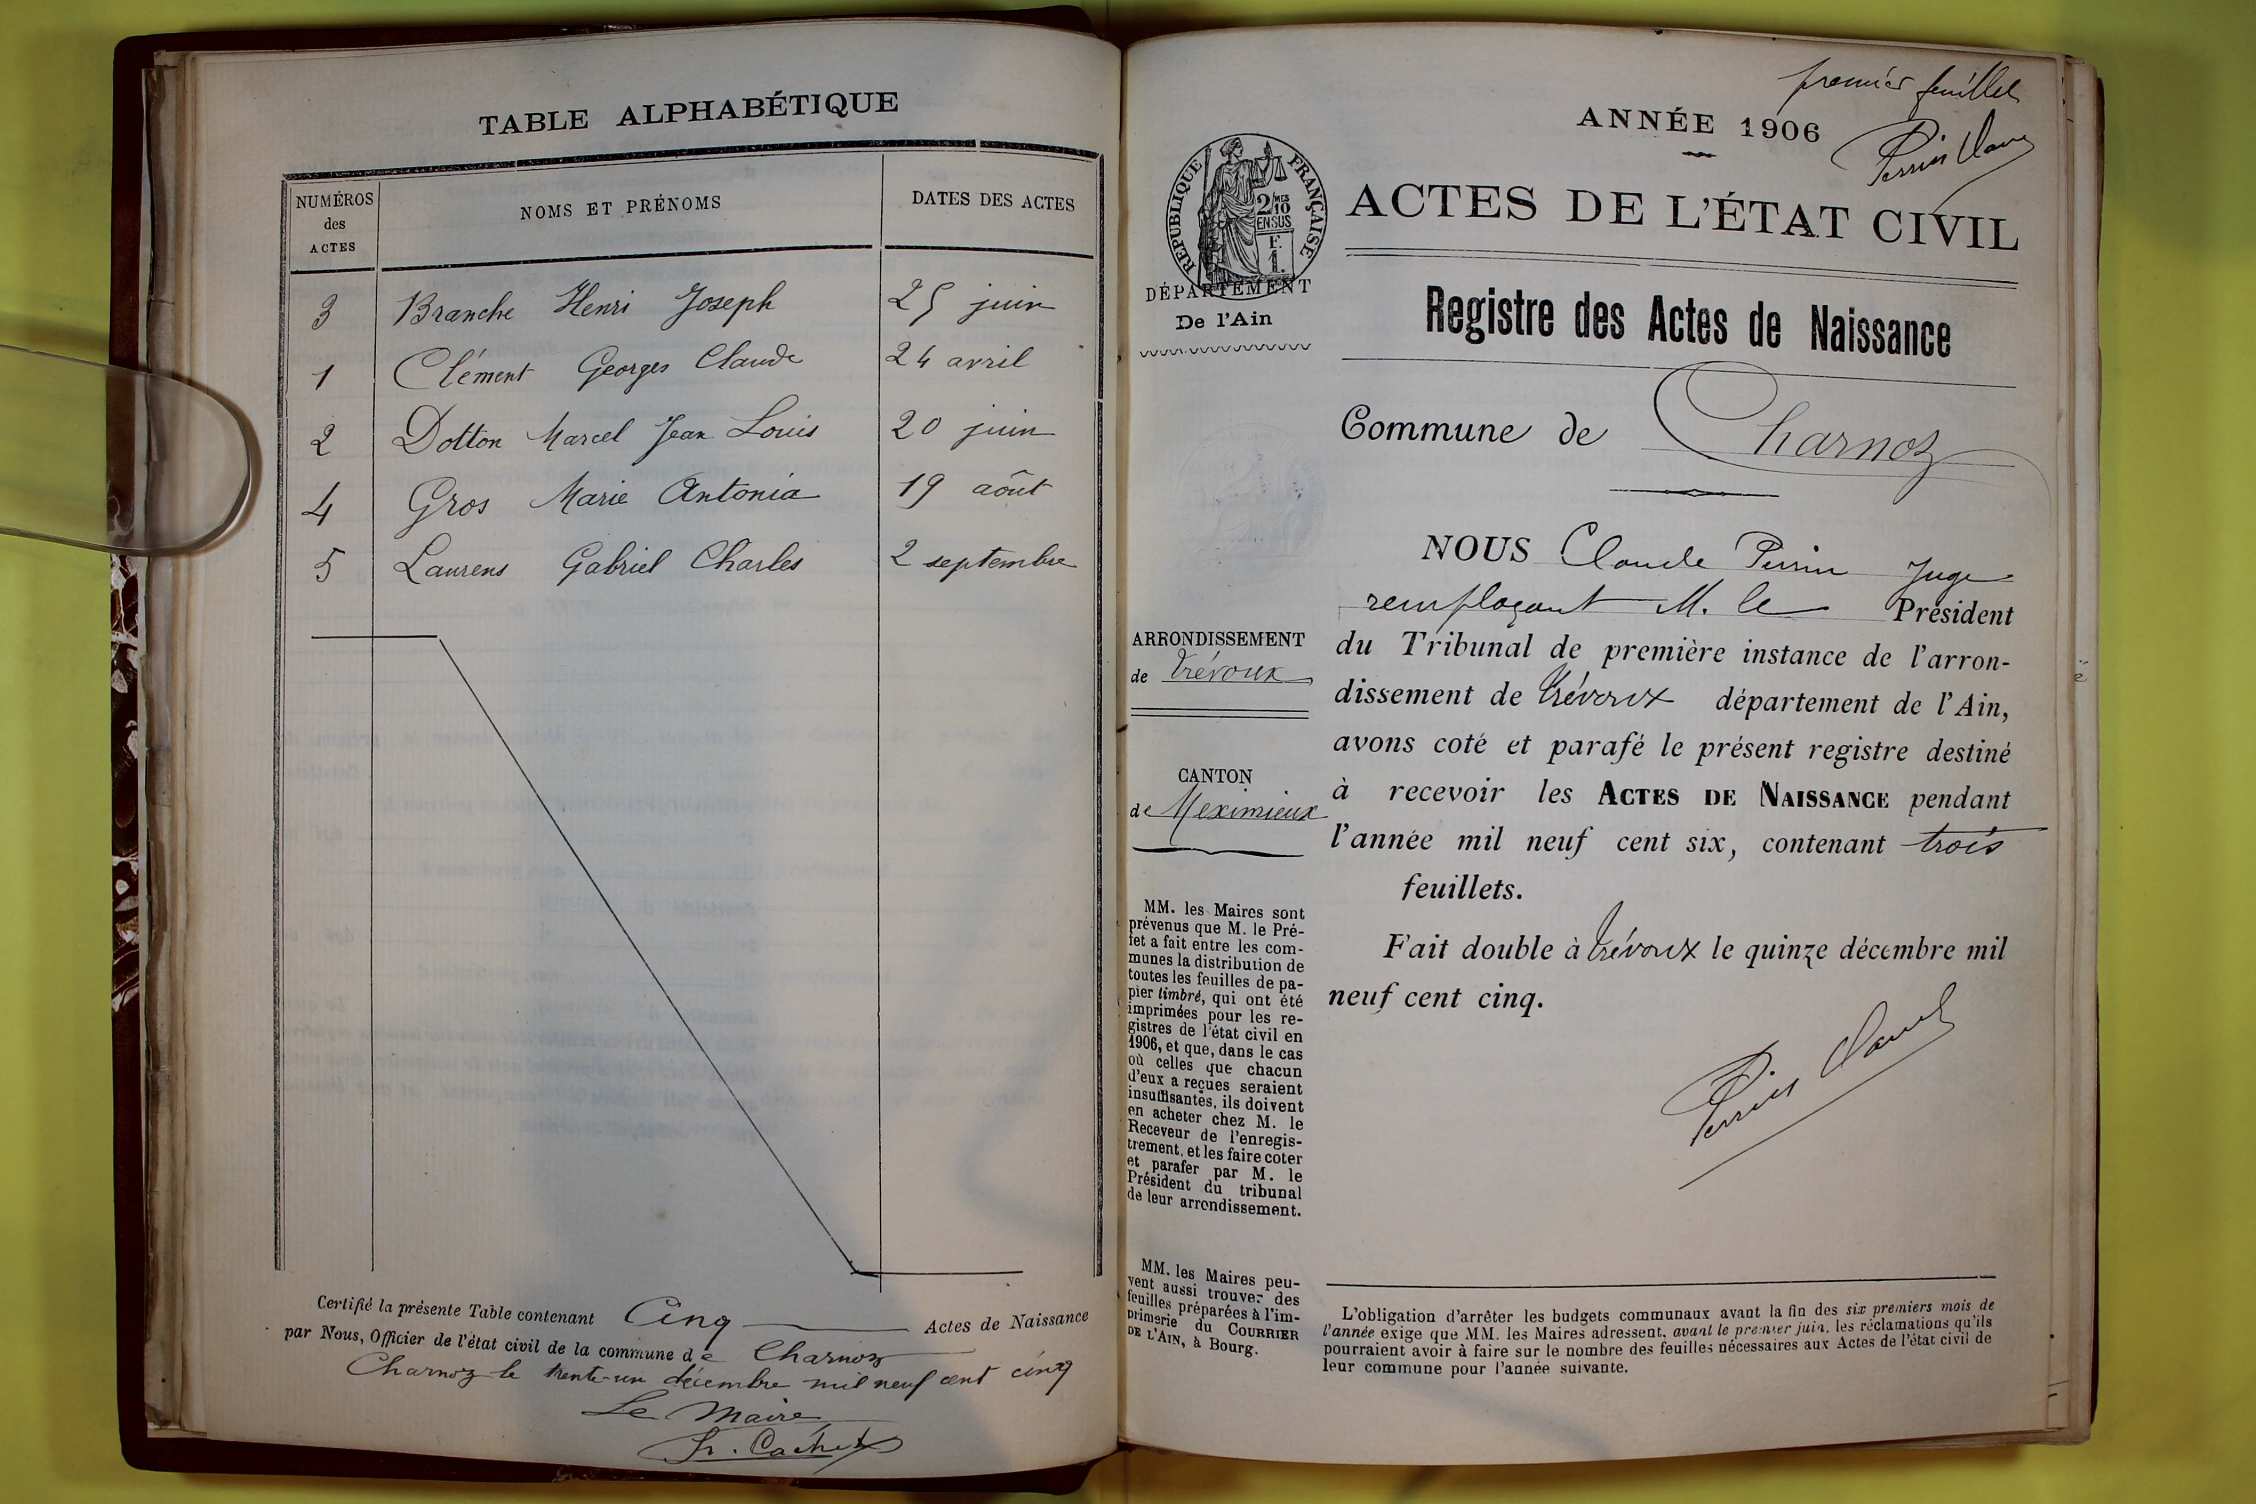 TABLE ALPHABÉTIQUE
NUMÉROS des ACTES
NOMS ET PRÉNOMS
DATES DES ACTES
3 Branche Henri Joseph 25 juin
1 Clément Georges Claude 24 avril
2 Dotton Marcel Jean Louis 20 juin
4 Gros Marie Antonia 19 août
5 Laurens Gabriel Charles 2 septembre
Certifié la présente Table contenant Cinq Actes de Naissance
par Nous, Officier de l'état civil de la commune de Charnoz
Charnoz le trente-un décembre mil neuf cent cinq
Le Maire
premier feuillet
ANNÉE 1906
Perrin Claude
RÉPUBLIQUE FRANÇAISE
2/10 MES
EN SUS
F.
1.
DÉPARTEMENT
De l'Ain
ACTES DE L'ÉTAT CIVIL
Registre des Actes de Naissance
Commune de Charnoz
ARRONDISSEMENT
de Trévoux
CANTON
de Meximieux
MM. les Maires sont
prévenus que M. le Pré-
fet a fait entre les com-
munes la distribution de
toutes les feuilles de pa-
pier timbré, qui ont été
imprimées pour les re-
gistres de l'état civil en
1906, et que, dans le cas
où celles que chacun
d'eux a reçues seraient
insuffisantes, ils doivent
en acheter chez M. le
Receveur de l'enregis-
trement, et les faire coter
et parafer par M. le
Président du tribunal
de leur arrondissement.
MM. les Maires peu-
vent aussi trouver des
feuilles préparées à l'im-
primerie du COURRIER
DE L'AIN, à Bourg.
NOUS Claude Perrin Juge
remplaçant M. le Président
du Tribunal de première instance de l'arron-
dissement de Trévoux département de l'Ain,
avons coté et parafé le présent registre destiné
à recevoir les ACTES DE NAISSANCE pendant
l'année mil neuf cent six, contenant trois
feuillets.
Fait double à Trévoux le quinze décembre mil
neuf cent cinq.
Perrin Claude
L'obligation d'arrêter les budgets communaux avant la fin des six premiers mois de
l'année exige que MM. les Maires adressent, avant le premier juin, les réclamations qu'ils
pourraient avoir à faire sur le nombre des feuilles nécessaires aux Actes de l'état civil de
leur commune pour l'année suivante.